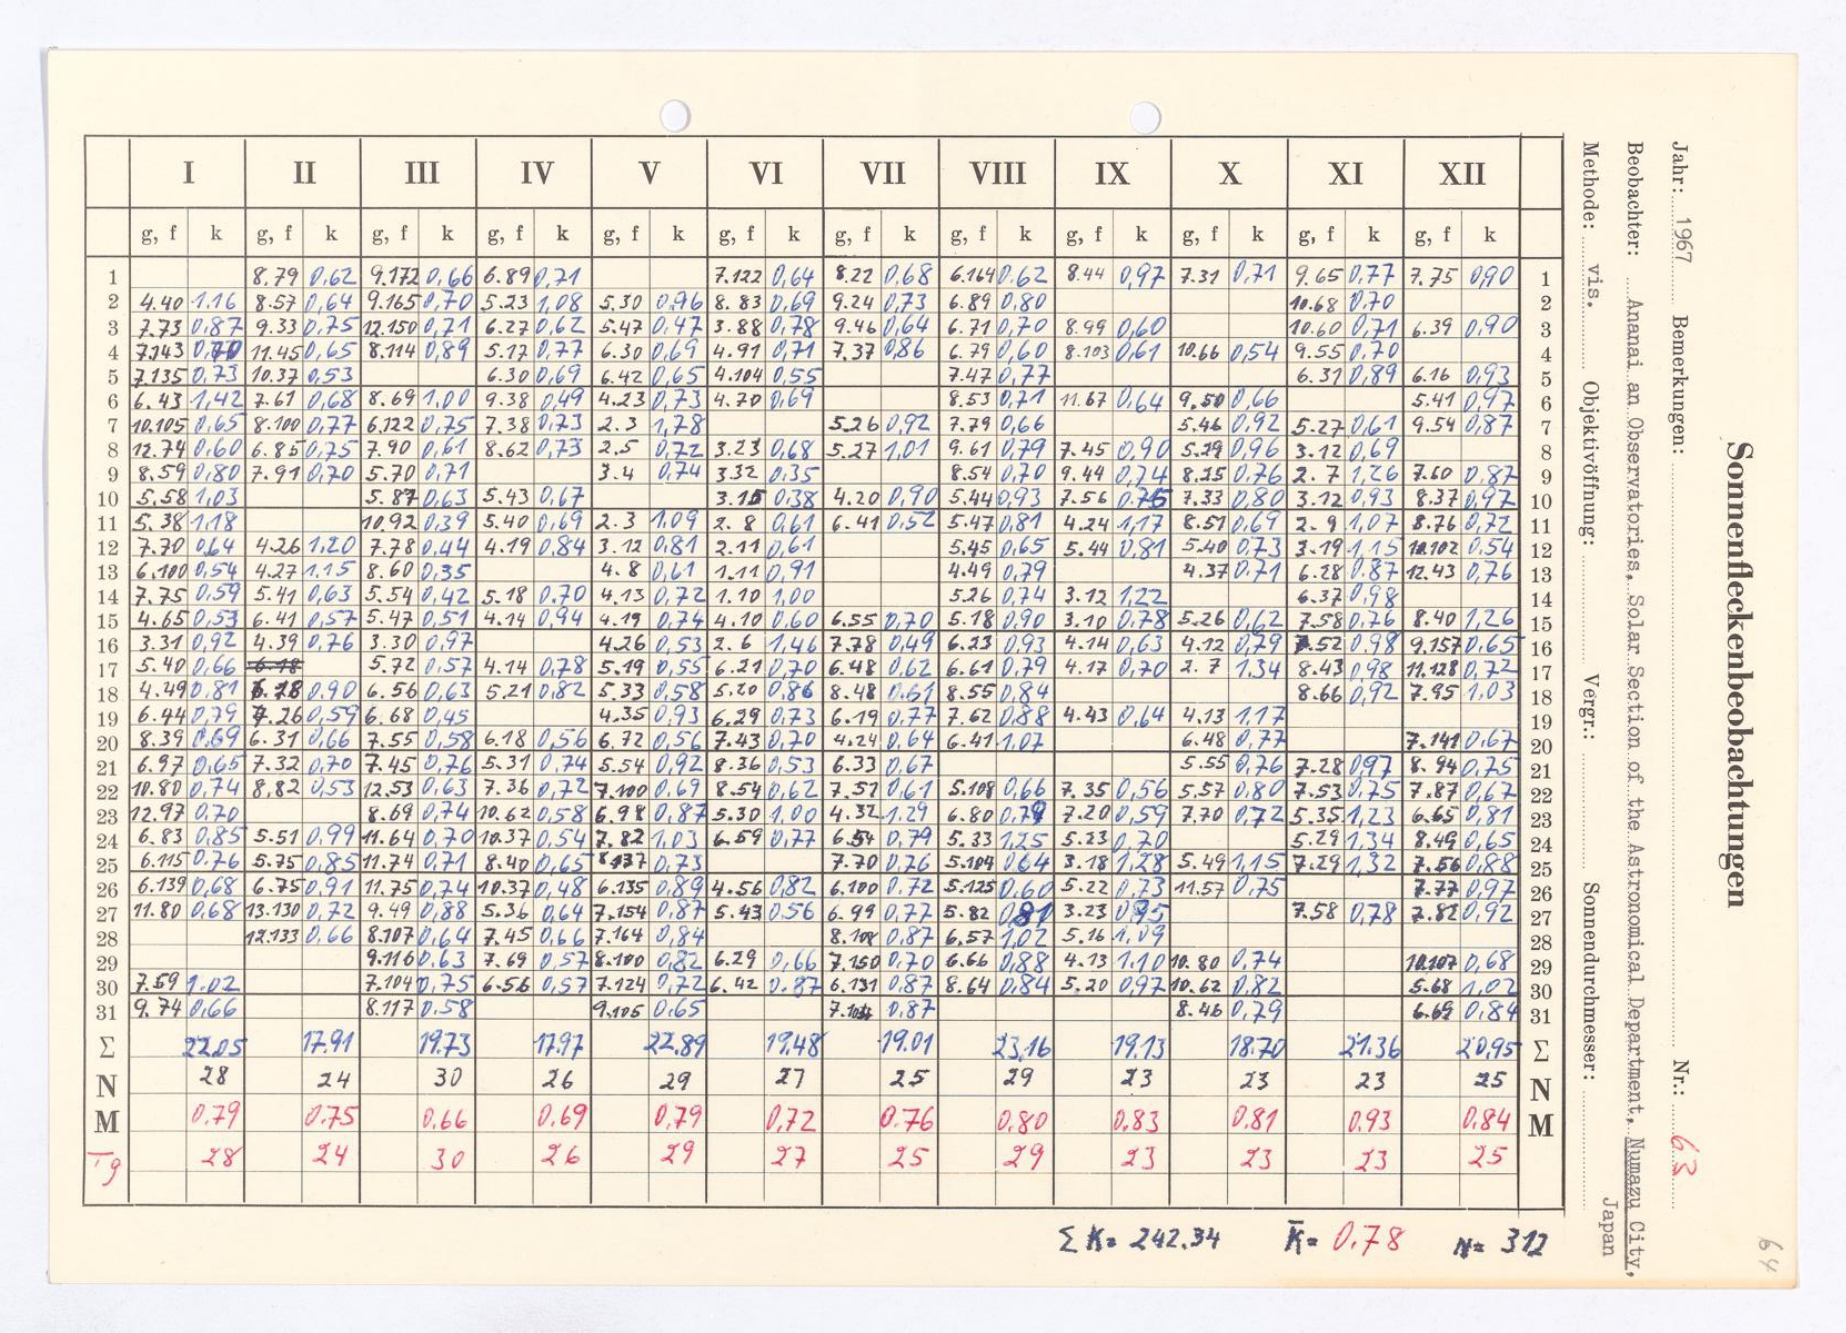 Sonnenfleckenbeobachtungen
Jahr: 1967 Bemerkungen: Nr.: 63
Beobachter: Ananai an Observatories, Solar Section of the Astronomical Department, Numazu City, Japan
Methode: vis. Objektivöffnung: Vergr.: Sonnendurchmesser:
64
I II III IV V VI VII VIII IX X XI XII
g, f k g, f k g, f k g, f k g, f k g, f k g, f k g, f k g, f k g, f k g, f k g, f k
1 8.79 0,62 9.172 0,66 6.89 0,71 7.122 0,64 8.22 0,68 6.164 0,62 8.44 0,97 7.31 0,71 9.65 0,77 7.75 0,90 1
2 4.40 1,16 8.57 0,64 9.165 0,70 5.23 1,08 5.30 0,96 8.83 0,69 9.24 0,73 6.89 0,80 10.68 0,70 2
3 7.73 0,87 9.33 0,75 12.150 0,71 6.27 0,62 5.47 0,47 3.88 0,78 9.46 0,64 6.71 0,70 8.99 0,60 10.60 0,71 6.39 0,90 3
4 7.143 0,70 11.45 0,65 8.114 0,89 5.17 0,77 6.30 0,69 4.91 0,71 7.37 0,86 6.79 0,60 8.103 0,61 10.66 0,54 9.55 0,70 4
5 7.135 0,73 10.37 0,53 6.30 0,69 6.42 0,65 4.104 0,55 7.47 0,77 6.31 0,89 6.16 0,93 5
6 6.43 1,42 7.61 0,68 8.69 1,00 9.38 0,49 4.23 0,73 4.70 0,69 8.53 0,71 11.67 0,64 9.50 0,66 5.41 0,97 6
7 10.105 0,65 8.100 0,77 6.122 0,75 7.38 0,73 2.3 1,78 5.26 0,92 7.79 0,66 5.46 0,92 5.27 0,61 9.54 0,87 7
8 12.74 0,60 6.85 0,75 7.90 0,61 8.62 0,73 2.5 0,72 3.23 0,68 5.27 1,01 9.61 0,79 7.45 0,90 5.29 0,96 3.12 0,69 8
9 8.59 0,80 7.91 0,70 5.70 0,71 3.4 0,74 3.32 0,35 8.54 0,70 9.44 0,74 8.25 0,76 2.7 1,26 7.60 0,87 9
10 5.58 1,03 5.87 0,63 5.43 0,67 3.15 0,38 4.20 0,90 5.44 0,93 7.56 0.76 7.33 0,80 3.12 0,93 8.37 0,97 10
11 5.38 1,18 10.92 0,39 5.40 0,69 2.3 1,09 2.8 0,61 6.41 0,52 5.47 0,81 4.24 1,17 8.51 0,69 2.9 1,07 8.76 0,72 11
12 7.70 0,64 4.26 1,20 7.78 0,44 4.19 0,84 3.12 0,81 2.11 0,61 5.45 0,65 5.44 0,81 5.40 0,73 3.19 1,15 10.102 0,54 12
13 6.100 0,54 4.27 1,15 8.60 0,35 4.8 0,61 1.11 0,91 4.49 0,79 4.37 0,71 6.28 0,87 12.43 0,76 13
14 7.75 0,59 5.41 0,63 5.54 0,42 5.18 0,70 4.13 0,72 1.10 1,00 5.26 0,74 3.12 1,22 6.37 0,98 14
15 4.65 0,53 6.41 0,57 5.47 0,51 4.14 0,94 4.19 0,74 4.10 0,60 6.55 0,70 5.18 0,90 3.10 0,78 5.26 0,62 7.58 0,76 8.40 1,26 15
16 3.31 0,92 4.39 0,76 3.30 0,97 4.26 0,53 2.6 1,46 7.78 0,49 6.23 0,93 4.14 0,63 4.12 0,79 7.52 0,98 9.157 0,65 16
17 5.40 0,66 6.18 5.72 0,57 4.14 0,78 5.19 0,55 6.21 0,70 6.48 0,62 6.61 0,79 4.17 0,70 2.7 1,34 8.43 0,98 11.128 0,72 17
18 4.49 0,81 6.18 0,90 6.56 0,63 5.21 0,82 5.33 0,58 5.20 0,86 8.48 0,61 8.55 0,84 8.66 0,92 7.95 1,03 18
19 6.44 0,79 7.26 0,59 6.68 0,45 4.35 0,93 6.29 0,73 6.19 0,77 7.62 0,88 4.43 0,64 4.13 1,17 19
20 8.39 0,69 6.31 0,66 7.55 0,58 6.18 0,56 6.72 0,56 7.43 0,70 4.24 0,64 6.41 1,07 6.48 0,77 7.141 0,67 20
21 6.97 0,65 7.32 0,70 7.45 0,76 5.31 0,74 5.54 0,92 8.36 0,53 6.33 0,67 5.55 0,76 7.28 0,97 8.94 0,75 21
22 10.80 0,74 8.82 0,53 12.53 0,63 7.36 0,72 7.100 0,69 8.54 0,62 7.52 0,61 5.108 0,66 7.35 0,56 5.57 0,80 7.53 0,75 7.87 0,67 22
23 12.97 0,70 8.69 0,74 10.62 0,58 6.98 0,87 5.30 1,00 4.32 1,29 6.80 0,79 7.20 0,59 7.70 0,72 5.35 1,23 6.65 0,81 23
24 6.83 0,85 5.51 0,99 11.64 0,70 10.37 0,54 7.82 1,03 6.59 0,77 6.54 0,79 5.33 1,25 5.23 0,70 5.29 1,34 8.49 0,65 24
25 6.115 0,76 5.75 0,85 11.74 0,71 8.40 0,65 8.137 0,73 7.70 0,76 5.104 0,64 3.18 1,28 5.49 1,15 7.29 1,32 7.56 0,88 25
26 6.139 0,68 6.75 0,91 11.75 0,74 10.37 0,48 6.135 0,89 4.56 0,82 6.100 0,72 5.125 0,60 5.22 0,73 11.57 0,75 7.77 0,97 26
27 11.80 0,68 13.130 0,72 9.49 0,88 5.36 0,64 7.154 0,87 5.43 0,56 6.99 0,77 5.82 0,81 3.23 0,95 7.58 0,78 7.82 0,92 27
28 12.133 0,66 8.107 0,64 7.45 0,66 7.164 0,84 8.108 0,87 6.57 1,02 5.16 1,09 28
29 9.116 0,63 7.69 0,57 8.100 0,82 6.29 0,66 7.150 0,70 6.66 0,88 4.13 1,10 10.80 0,74 10.107 0,68 29
30 7.59 1,02 7.104 0,75 6.56 0,57 7.124 0,72 6.42 0,87 6.131 0,87 8.64 0,84 5.20 0,97 10.62 0,82 5.68 1,02 30
31 9.74 0,66 8.117 0,58 9.105 0,65 0,87 8.46 0,79 6.69 0,84 31
Σ 22,05 17,91 19,73 17,97 22,89 19,48 19,01 23,16 19,13 18,70 21,36 20,95 Σ
N 28 24 30 26 29 27 25 29 23 23 23 25 N
M 0,79 0,75 0,66 0,69 0,79 0,72 0,76 0,80 0,83 0,81 0,93 0,84 M
Tg 28 24 30 26 29 27 25 29 23 23 23 25
Σ K = 242.34 K̄ = 0,78 N = 312